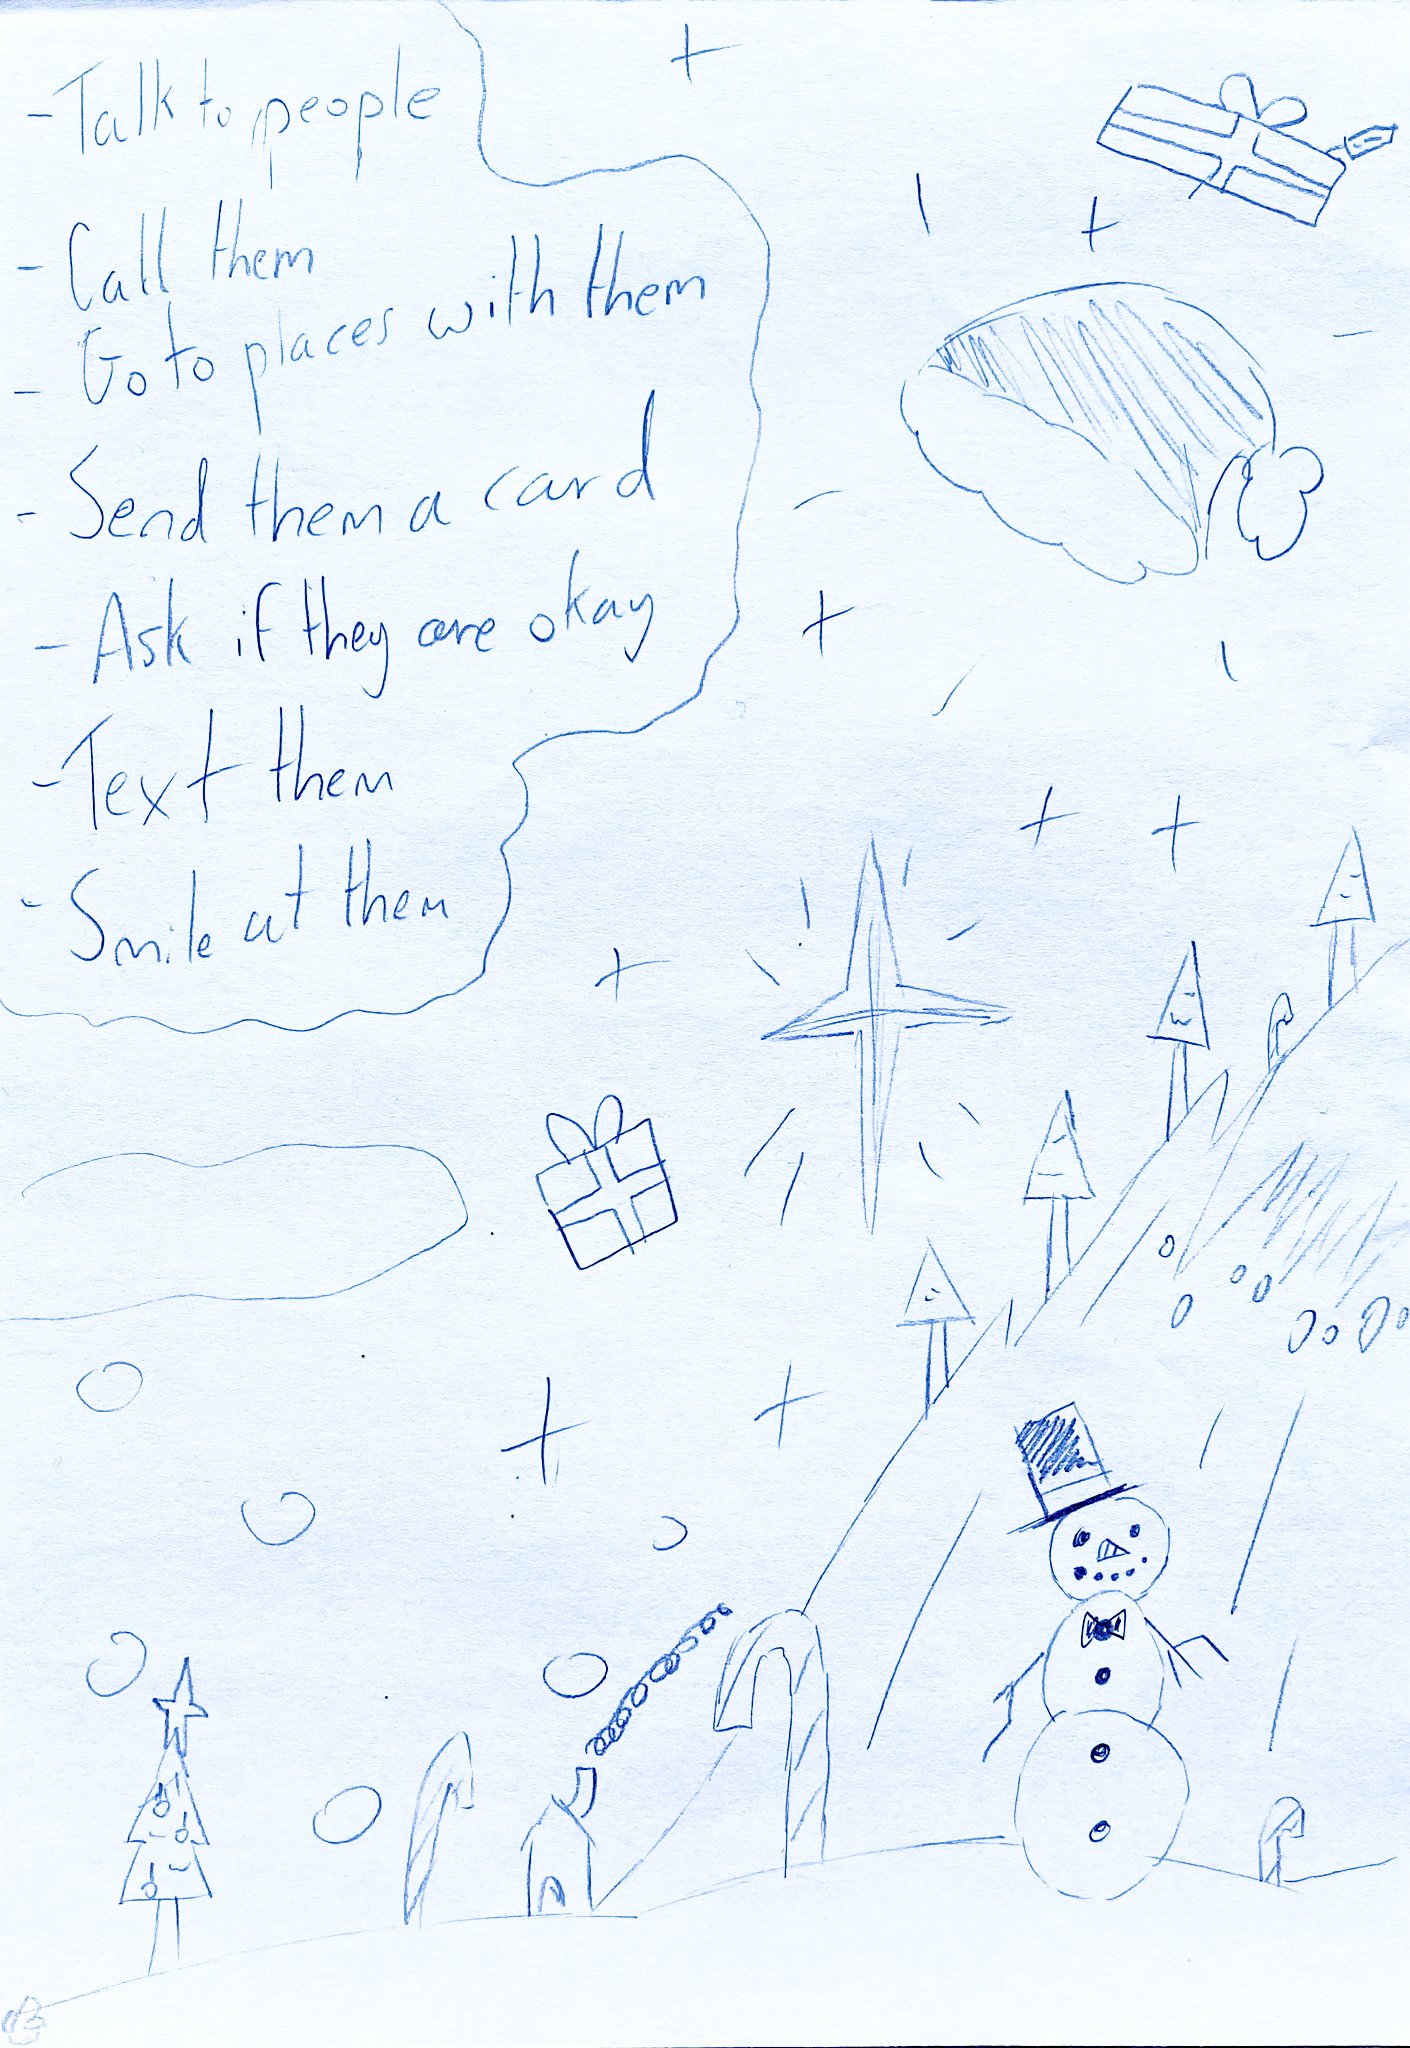 - Talk to people
- Call them
- Go to places with them
- Send them a card
- Ask if they are okay
- Text them
- Smile at them